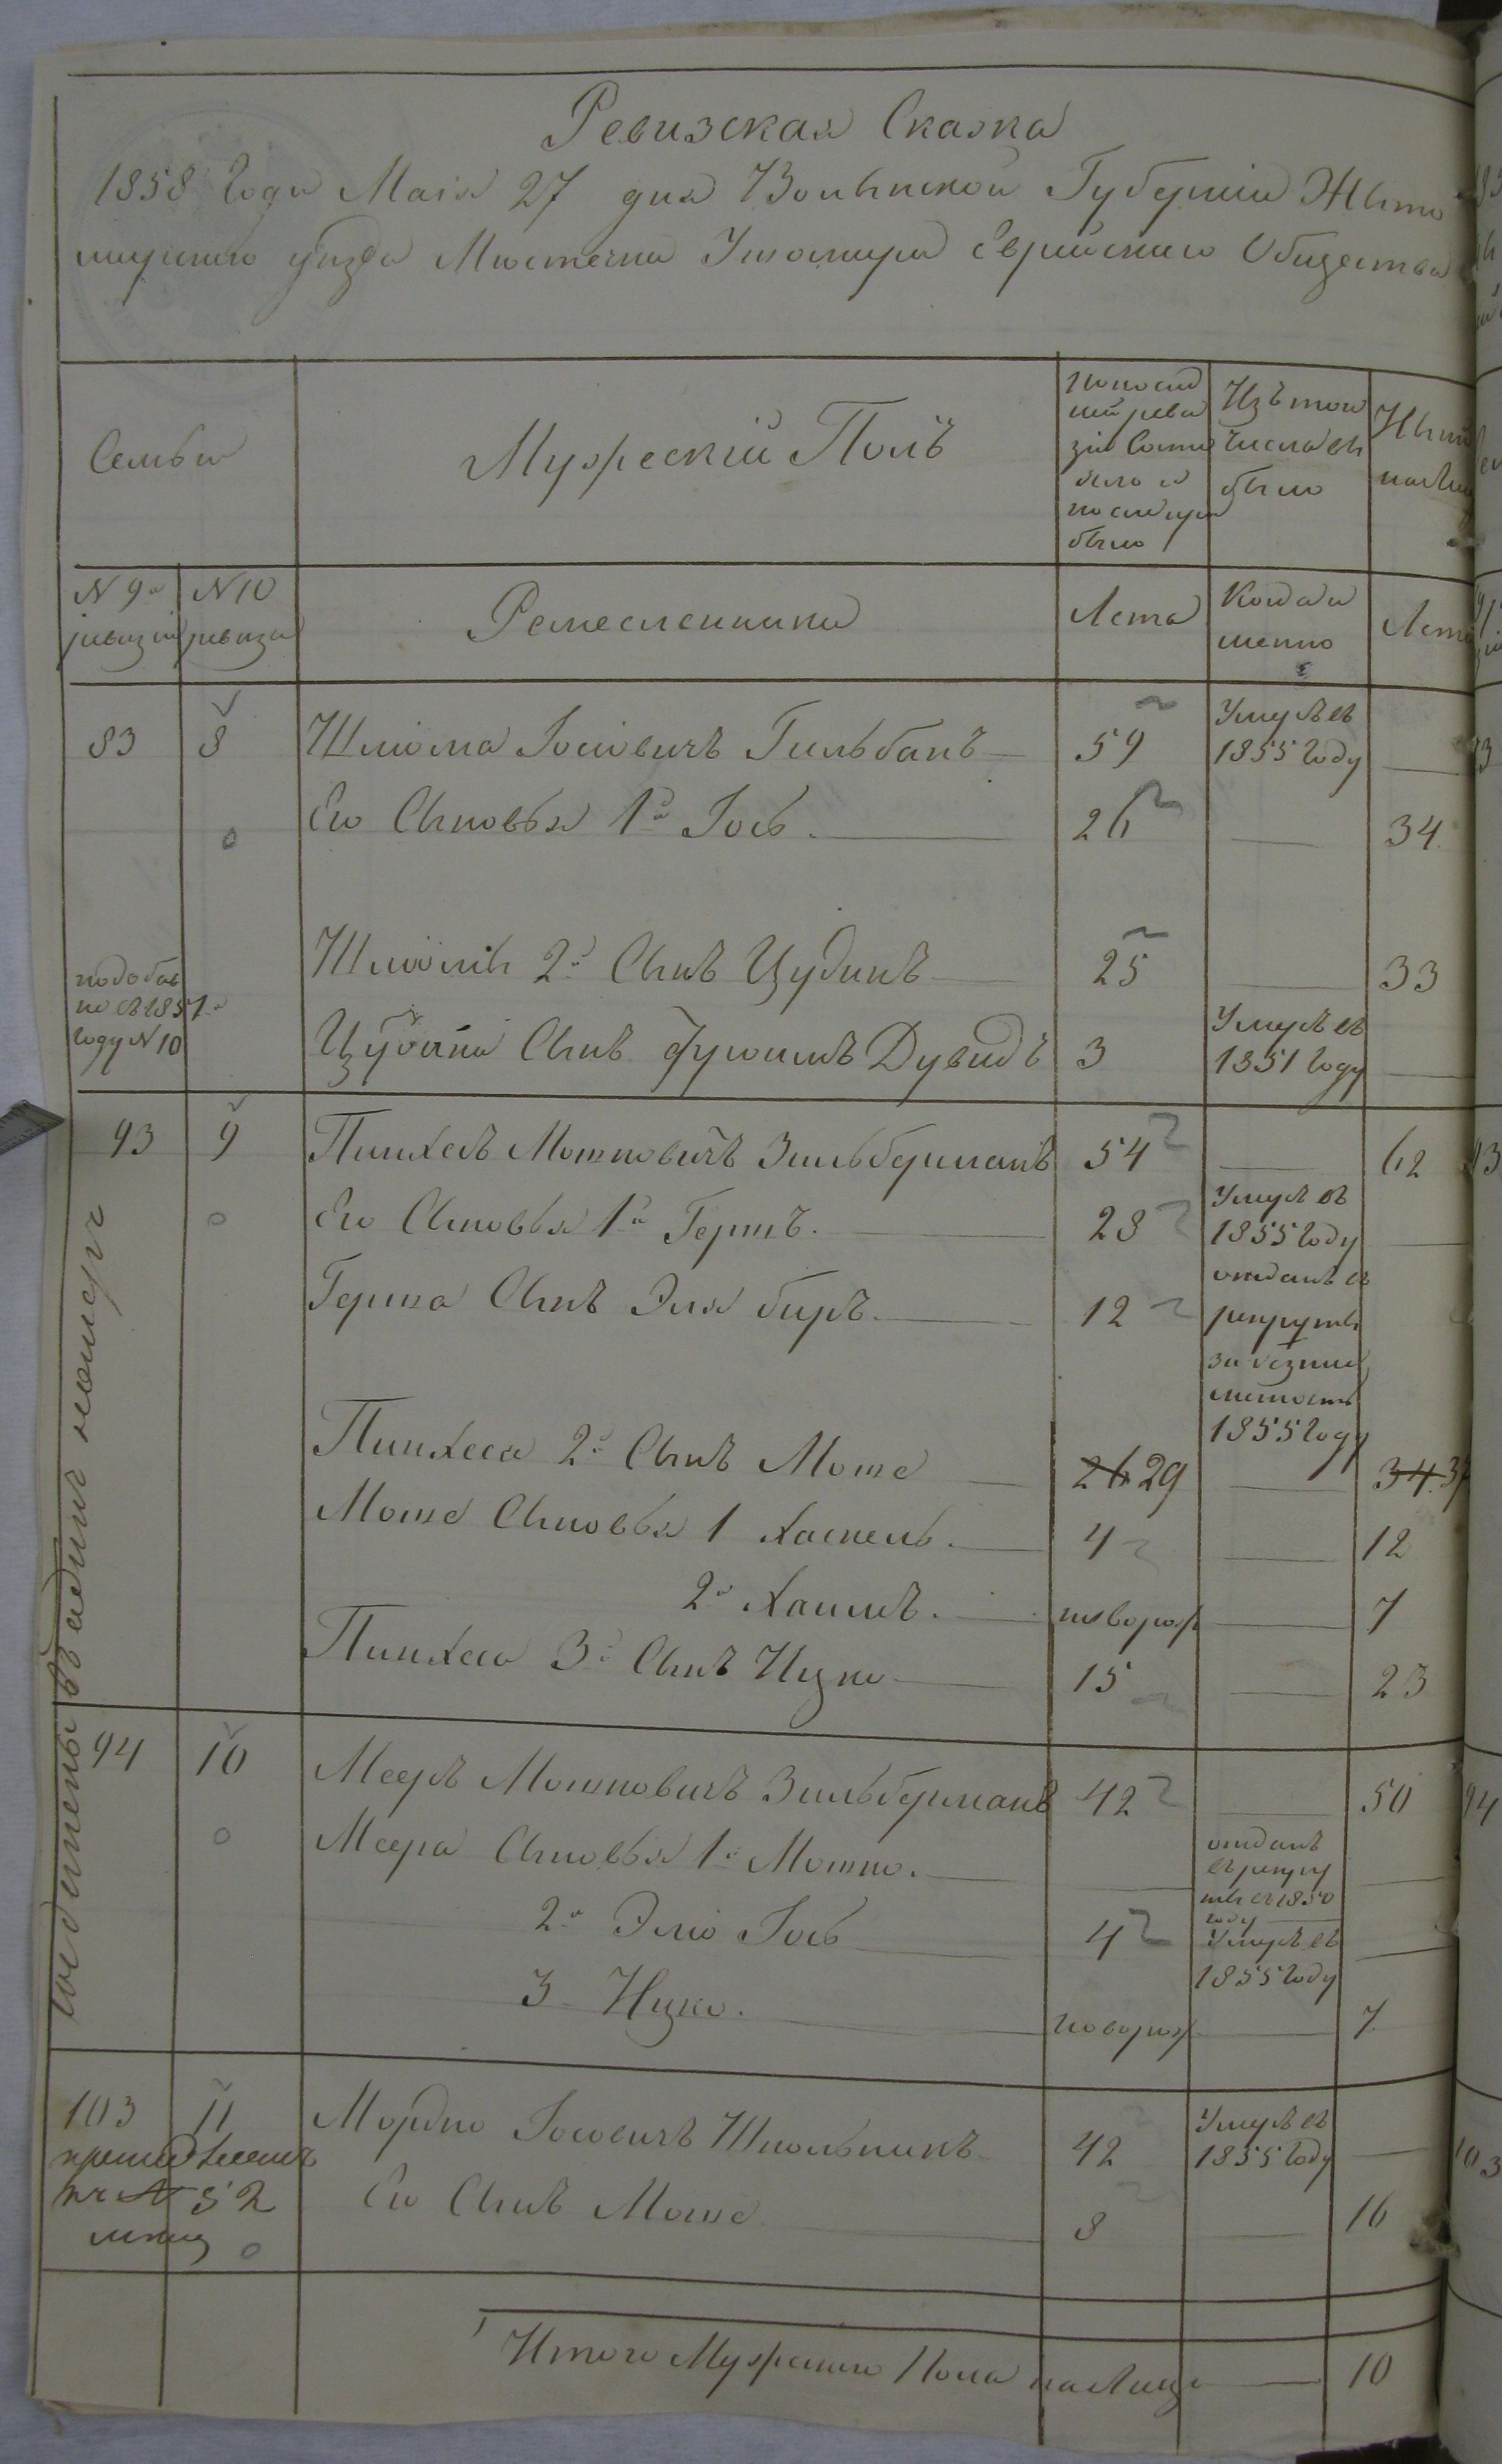 Ревизская Сказка
1858 Года Маія 27 дня Волынской Губерніи Жыто
мирского уизда Мистечка Ушомира Еврейского Общества
Семьи
Мужескій Полъ
По послид
ній реви
зіи Состо
яло и
после
было
Изъ того
числа вы
было
Ныне
на лицо
N 9й N 10
ревизіи ревизіи
Ремесленники
Лета
Когда и
менно
Лета
83 8 Шліома Іосіовичъ Гильбанъ 59 Умеръ въ
1855 Году
Его Сыновья 1й Іось 26 34
Шліомы 2й Сынъ Цудикъ 25 33
по добав
по съ 1851
Году N 10
Цудика Сынъ Фроимъ Дувидъ 3 Умеръ въ
1851 Году
93 9 Пинхесъ Мошковичъ Зильберманъ 54 62
Его Сыновья 1й Гершъ 28 Умеръ въ
1855 Году
Герша Сынъ Эля биръ 12 отданъ въ
рекруты
за
1855 Году
Пинхеса 2й Сынъ Моше 26 29 34 37
Моше Сыновья 1 Хаскель 4 12
2й Хаимъ новорож 7
Пинхеса 3й Сынъ Ицко 15 23
94 10 Мееръ Мошковичъ Зильберманъ 42 50
Меера Сыновья 1й Мошко отданъ
въ рекру
ты въ 1850
году
2й Эліо Іось 4 Умеръ въ
1855 Году
3 Ицко новорож 7
соединены въ единъ номеръ
103 11 Мордко Іосіовичъ Школьникъ 42 Умеръ въ
1855 Году
N 52
Его Сынъ Моше 8 16
Итого Мужеского Пола на Лицо 10